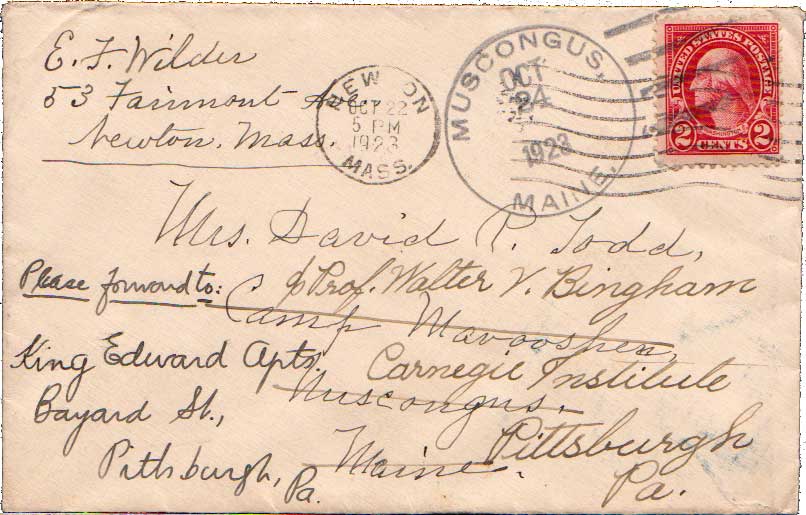 E. F. Wilder
53 Fairmont Ave.
Newton, Mass.
NEWTON
OCT 22
5 PM
1923
MASS.
MUSCONGUS,
OCT
24
1923
MAINE.
UNITED STATES POSTAGE
WASHINGTON
2 CENTS 2
Mrs. David P. Todd,
c/o Prof. Walter V. Bingham
Please forward to:
Camp Mavooshen,
King Edward Apts.
Carnegie Institute
Muscongus.
Bayard St.,
Pittsburgh
Pittsburgh,
Maine.
Pa.
Pa.